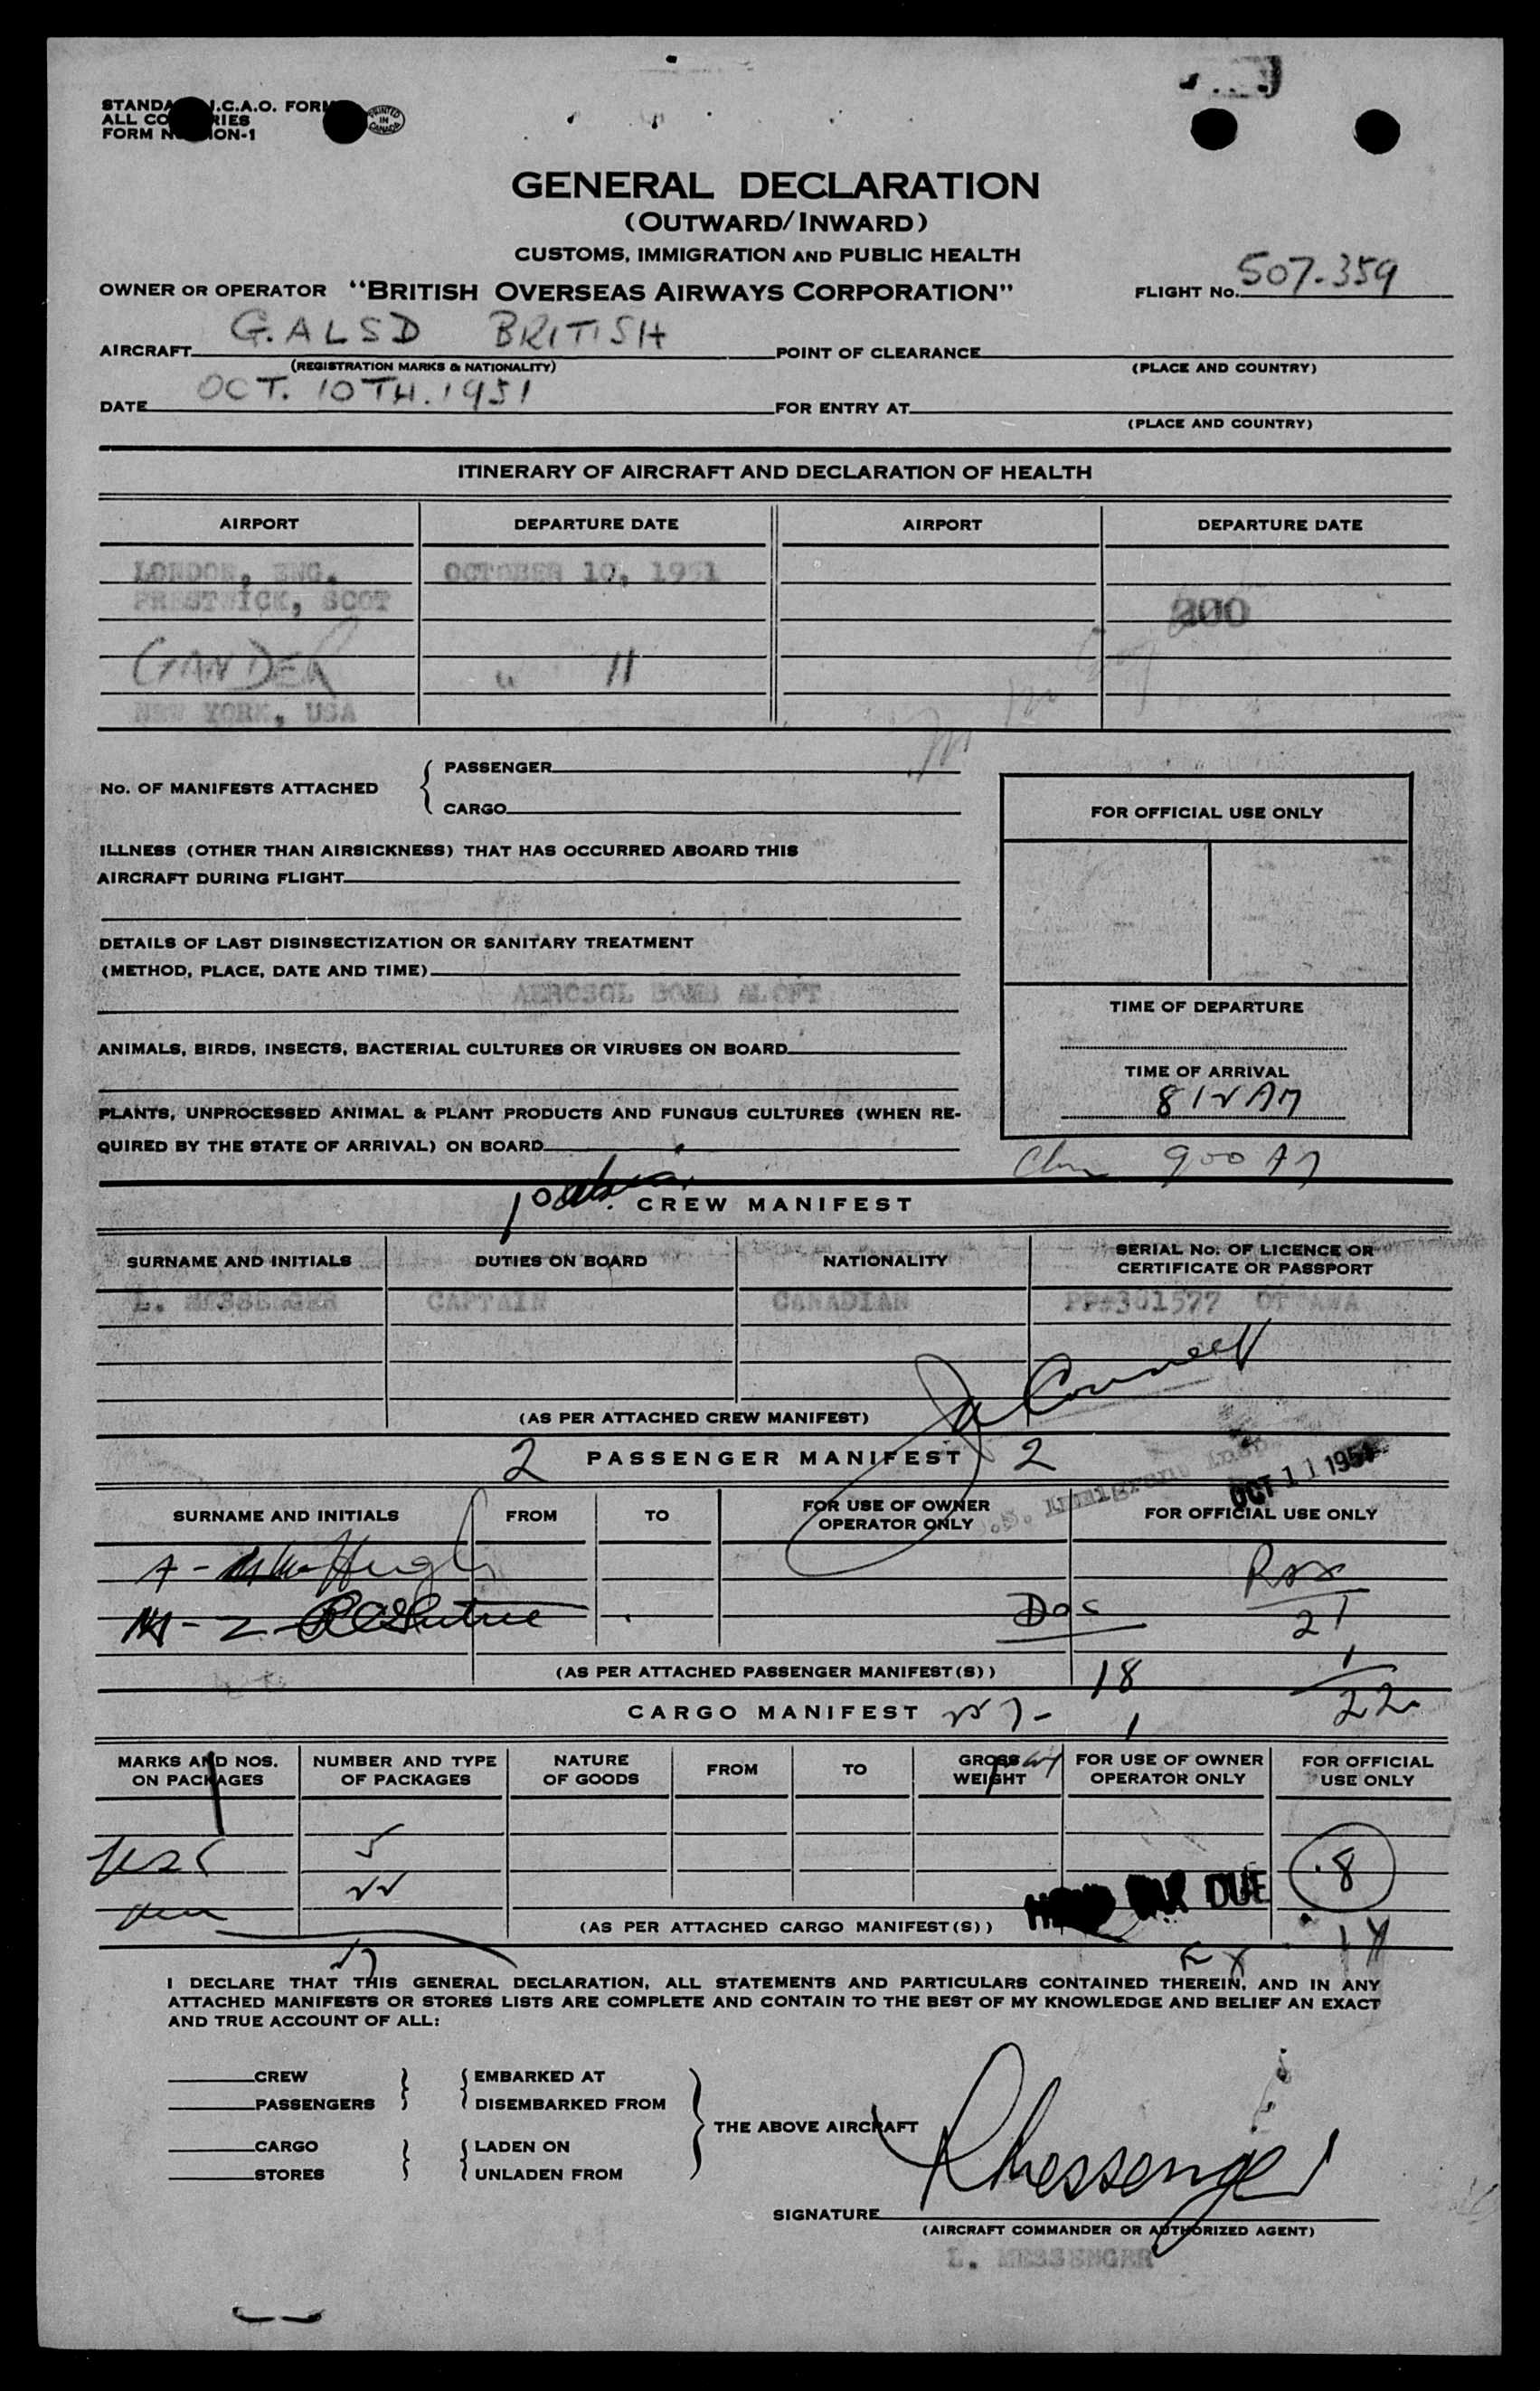 STANDA I.C.A.O. FORM
ALL CO RIES
FORM N ION-1
PRINTED IN CANADA
GENERAL DECLARATION
(OUTWARD/INWARD)
CUSTOMS, IMMIGRATION AND PUBLIC HEALTH
OWNER OR OPERATOR "BRITISH OVERSEAS AIRWAYS CORPORATION" FLIGHT No. 507-359
AIRCRAFT G.ALSD BRITISH POINT OF CLEARANCE
(REGISTRATION MARKS & NATIONALITY) (PLACE AND COUNTRY)
DATE OCT. 10TH. 1951 FOR ENTRY AT
(PLACE AND COUNTRY)
ITINERARY OF AIRCRAFT AND DECLARATION OF HEALTH
AIRPORT DEPARTURE DATE AIRPORT DEPARTURE DATE
LONDON, ENG. OCTOBER 10, 1951
PRESTWICK, SCOT 200
GANDER " 11
NEW YORK, USA
No. OF MANIFESTS ATTACHED { PASSENGER
CARGO
FOR OFFICIAL USE ONLY
ILLNESS (OTHER THAN AIRSICKNESS) THAT HAS OCCURRED ABOARD THIS
AIRCRAFT DURING FLIGHT
DETAILS OF LAST DISINSECTIZATION OR SANITARY TREATMENT
(METHOD, PLACE, DATE AND TIME)
AEROSOL BOMB ALOFT
TIME OF DEPARTURE
ANIMALS, BIRDS, INSECTS, BACTERIAL CULTURES OR VIRUSES ON BOARD
TIME OF ARRIVAL
812 AM
PLANTS, UNPROCESSED ANIMAL & PLANT PRODUCTS AND FUNGUS CULTURES (WHEN RE-
QUIRED BY THE STATE OF ARRIVAL) ON BOARD
900 AM
CREW MANIFEST
SURNAME AND INITIALS DUTIES ON BOARD NATIONALITY SERIAL No. OF LICENCE OR
CERTIFICATE OR PASSPORT
L. MESSENGER CAPTAIN CANADIAN PP#301577 OTTAWA
(AS PER ATTACHED CREW MANIFEST)
2 PASSENGER MANIFEST 2
OCT 11 1951
.S. Immigrant Insp.
SURNAME AND INITIALS FROM TO FOR USE OF OWNER
OPERATOR ONLY FOR OFFICIAL USE ONLY
21
(AS PER ATTACHED PASSENGER MANIFEST(S)) 18 1
CARGO MANIFEST 1 22
MARKS AND NOS.
ON PACKAGES NUMBER AND TYPE
OF PACKAGES NATURE
OF GOODS FROM TO GROSS
WEIGHT FOR USE OF OWNER
OPERATOR ONLY FOR OFFICIAL
USE ONLY
5 8
DUE
(AS PER ATTACHED CARGO MANIFEST(S))
I DECLARE THAT THIS GENERAL DECLARATION, ALL STATEMENTS AND PARTICULARS CONTAINED THEREIN, AND IN ANY
ATTACHED MANIFESTS OR STORES LISTS ARE COMPLETE AND CONTAIN TO THE BEST OF MY KNOWLEDGE AND BELIEF AN EXACT
AND TRUE ACCOUNT OF ALL:
CREW EMBARKED AT
PASSENGERS DISEMBARKED FROM
THE ABOVE AIRCRAFT
CARGO LADEN ON
STORES UNLADEN FROM
SIGNATURE LMessenger
(AIRCRAFT COMMANDER OR AUTHORIZED AGENT)
L. MESSENGER